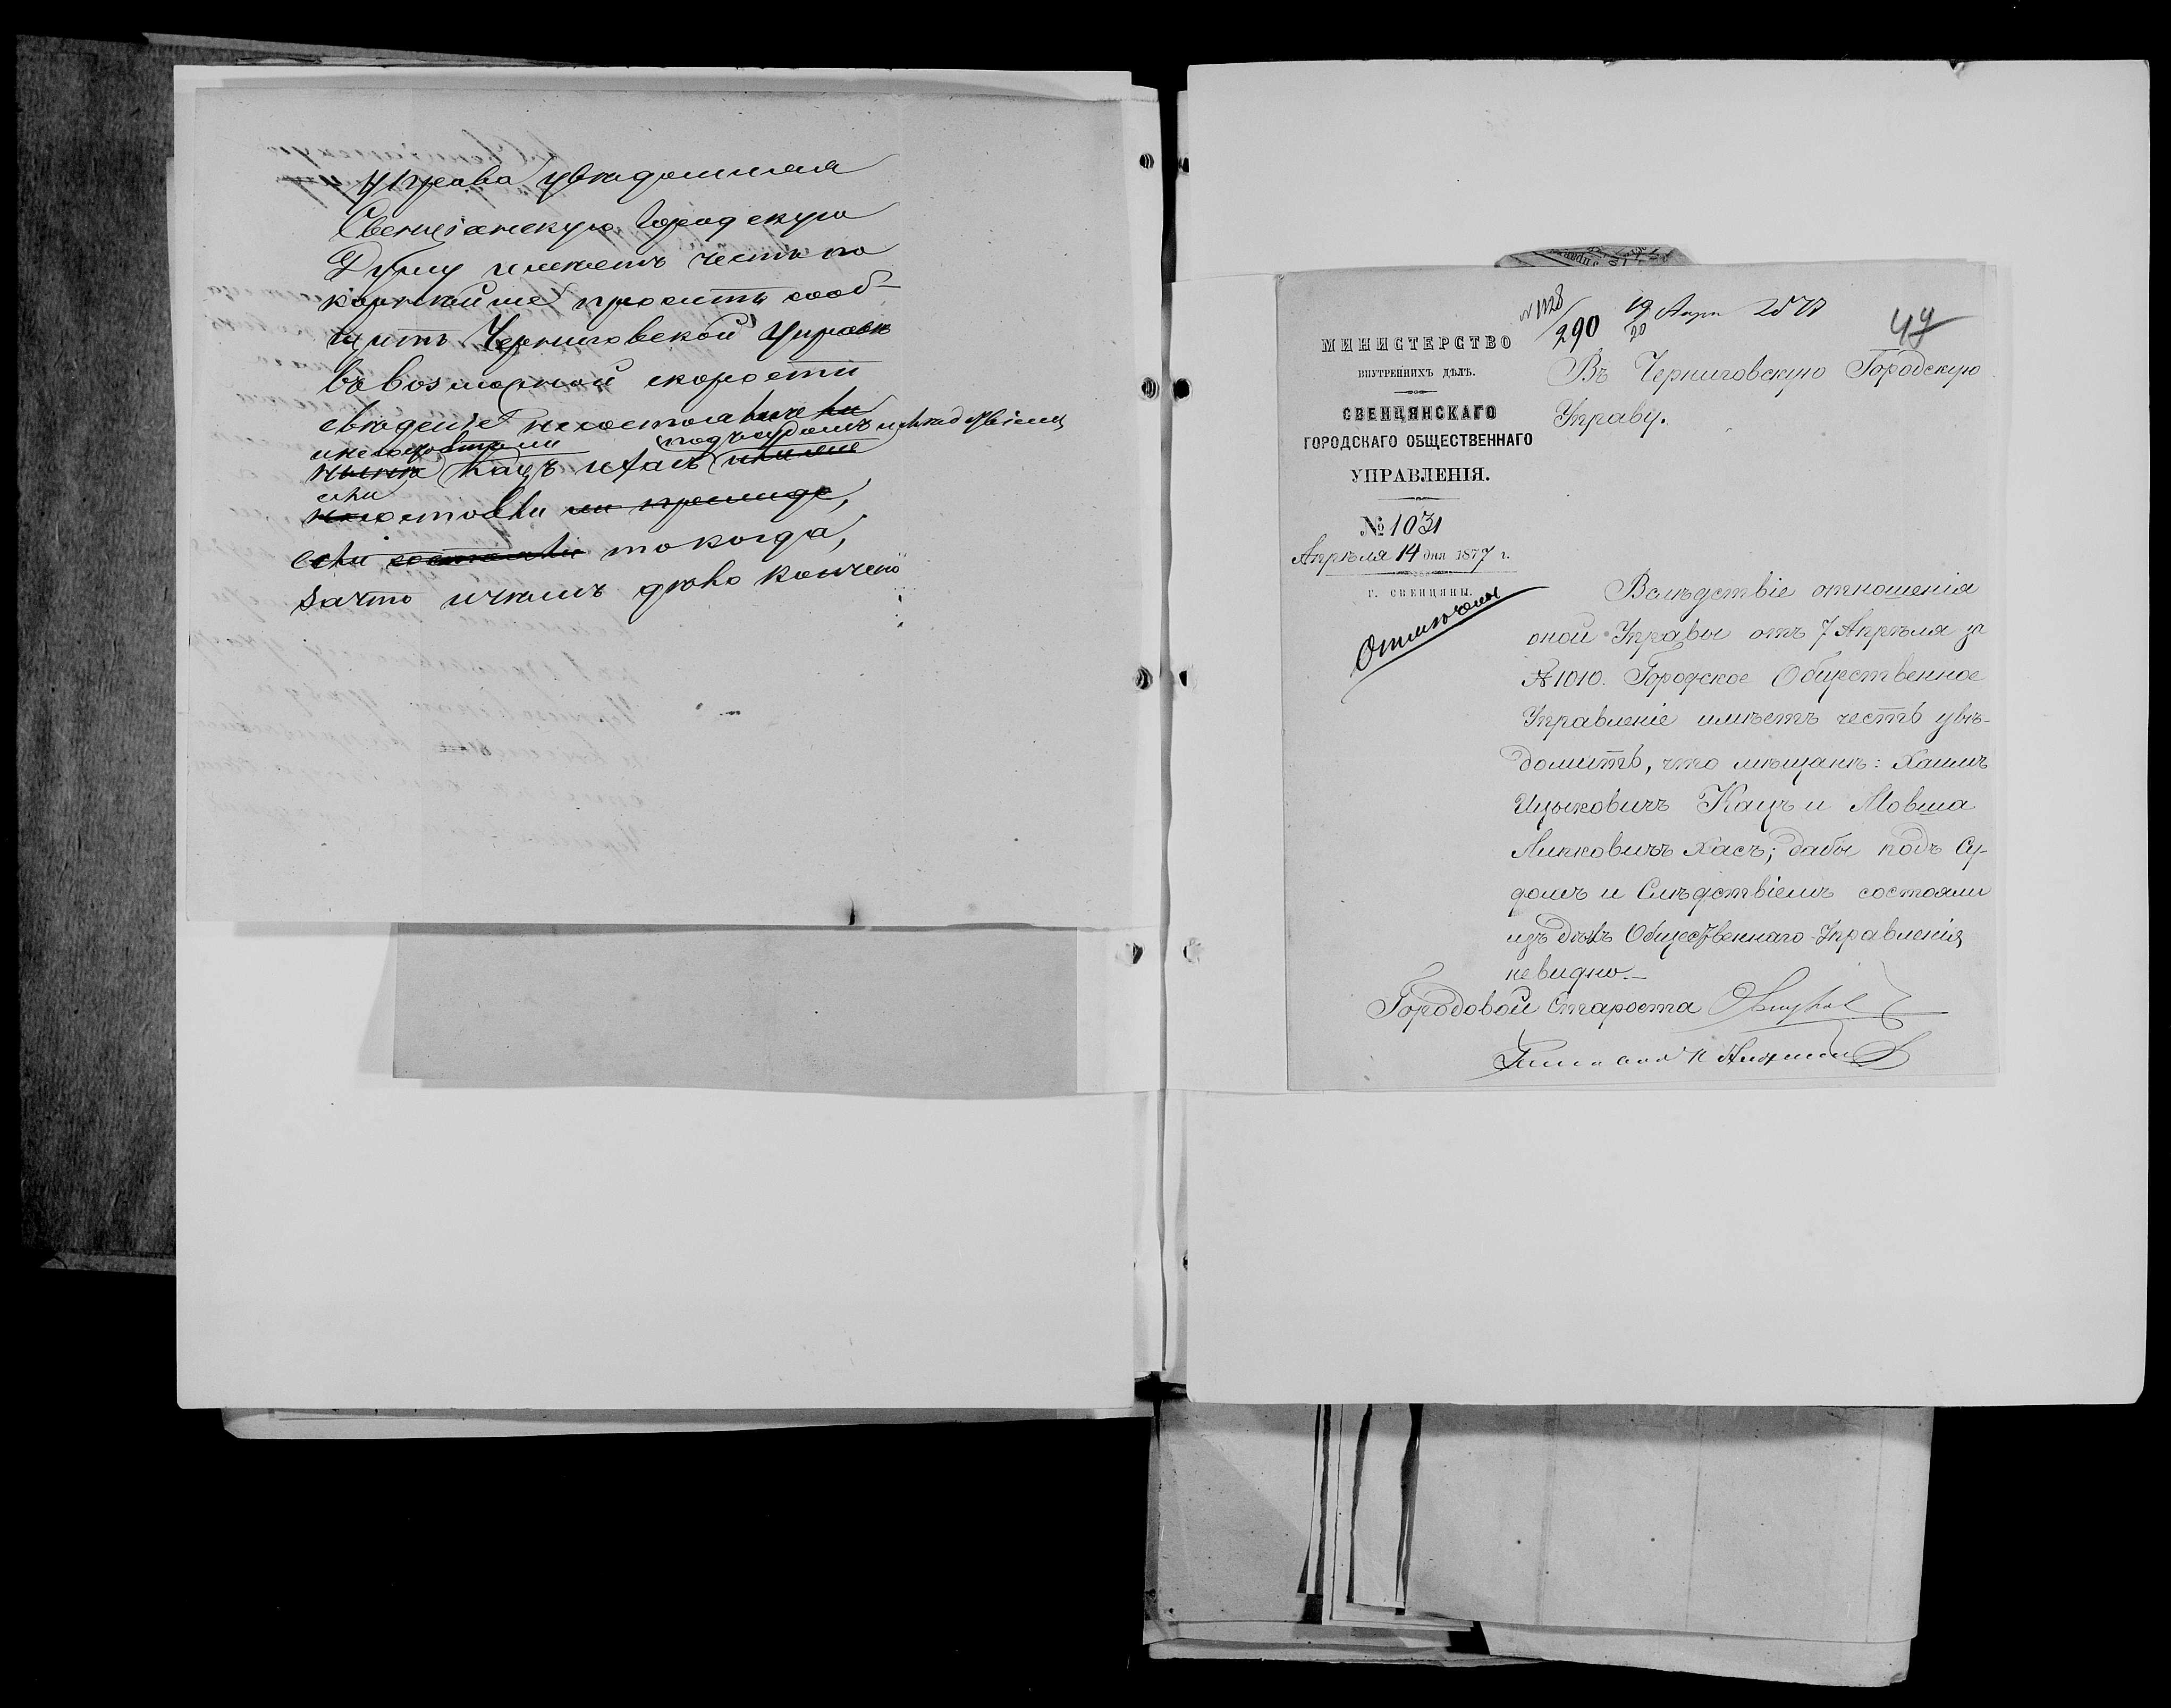 Управа увѣдомляя
Свенціанскую Городскую
Думу имѣетъ честь по
корнѣйше просить сооб-
щить Черниговской Управѣ
въ возможной скорости
свѣденіе несостоятъ ли
и несостояли подъ судомъ и
нынѣ Кацъ и Хасъ
если
состояли ли прежде,
если состояли то когда,
зачто и чѣмъ дѣло кончено
№ 1128
290 19 Апр 1877
20
44
МИНИСТЕРСТВО
ВНУТРЕННИХЪ ДѢЛЪ.
СВЕНЦЯНСКАГО
ГОРОДСКАГО ОБЩЕСТВЕННАГО
УПРАВЛЕНІЯ.
№ 1031
Апрѣля 14 дня 1877 г.
Г. СВЕНЦЯНЫ.
Въ Черниговскую Городскую
Управу.
Вслѣдствіе отношенія
оной Управы отъ 7 Апрѣля за
№ 1010. Городское Общественное
Управленіе имѣетъ честь увѣ-
домить, что мѣщане: Хаимъ
Ицыковичъ Кацъ и Мовша
Липковичъ Хасъ; дабы подъ Су-
домъ и Слѣдствіемъ состояли
изъ дѣлъ Общественнаго Управленія
не видно.-
Городовой Староста